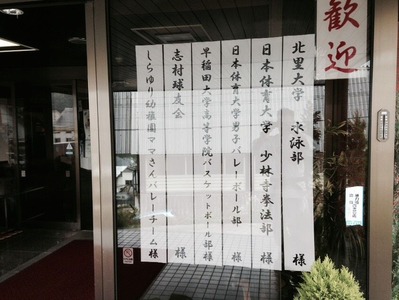 歓迎
北里大学 水泳部 様
日本体育大学 少林寺拳法部 様
日本体育大学男子バレーボール部 様
早稲田大学高等学院バスケットボール部 様
志村球友会 様
しらゆり幼稚園ママさんバレーチーム 様